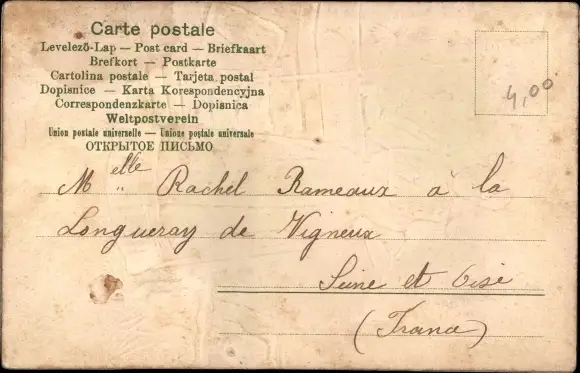 Carte postale
Levelező-Lap — Post card — Briefkaart
Brefkort — Postkarte
Cartolina postale — Tarjeta postal
Dopisnice — Karta Korespondencyjna
Correspondenzkarte — Dopisnica
Weltpostverein
Union postale universelle — Unione postale universale
ОТКРЫТОЕ ПИСЬМО
4,00
Melle Rachel Rameaux à la
Longueray de Vigneux
Seine et Oise
(France)